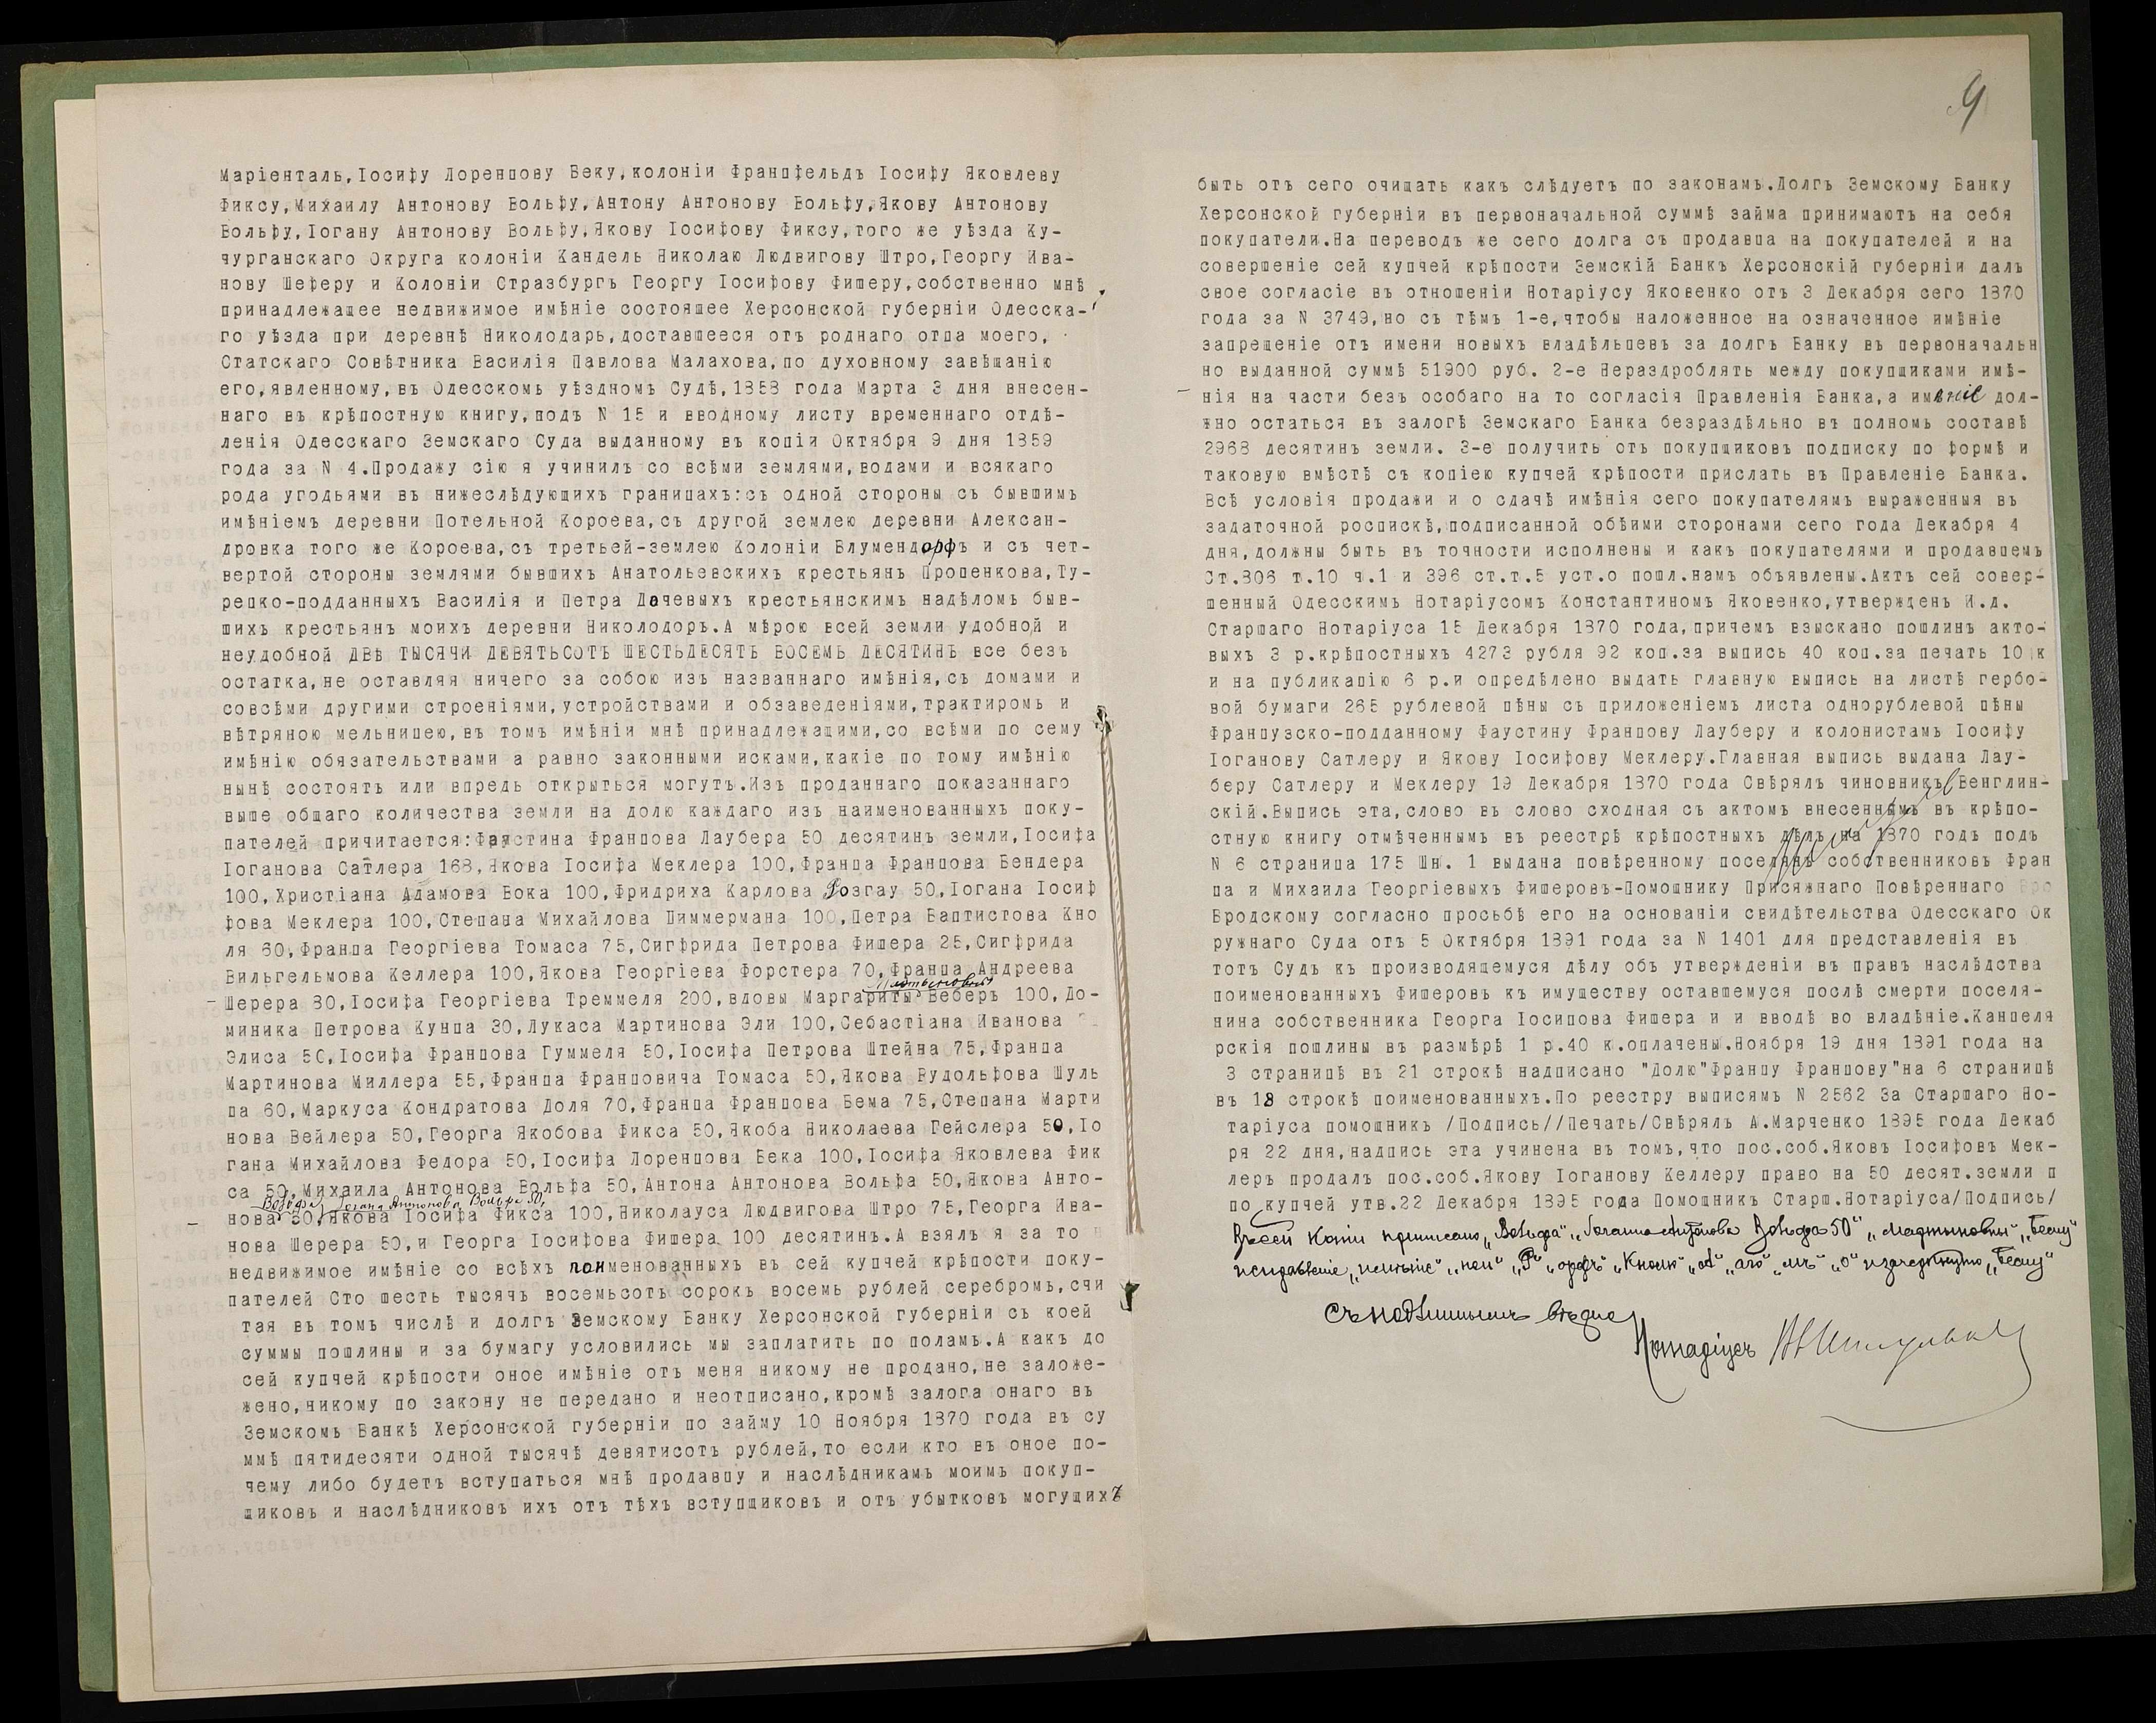 Маріенталь,Іосифу Лоренцову Беку,колоніи Францфельдъ Іосифу Яковлеву
Фиксу,Михаилу Антонову Вольфу,Антону Антонову Вольфу,Якову Антонову
Вольфу,Іогану Антонову Вольфу,Якову Іосифову Фиксу,того же уѣзда Ку-
чурганскаго Округа колоніи Кандель Николаю Людвигову Штро,Георгу Ива-
нову Шеферу и Колоніи Стразбургъ Георгу Іосифову Фишеру,собственно мнѣ
принадлежащее недвижимое имѣніе состоящее Херсонской губерніи Одесска-
го уѣзда при деревнѣ Николодарь,доставшееся отъ роднаго отца моего,
Статскаго Совѣтника Василія Павлова Малахова,по духовному завѣщанію
его,явленному,въ Одесскомъ уѣздномъ Судѣ,1858 года Марта 3 дня внесен-
наго въ крѣпостную книгу,подъ N 15 и вводному листу временнаго отдѣ-
ленія Одесскаго Земскаго Суда выданному въ копіи Октября 9 дня 1859
года за N 4.Продажу сію я учинилъ со всѣми землями,водами и всякаго
рода угодьями въ нижеслѣдующихъ границахъ:съ одной стороны съ бывшимъ
имѣніемъ деревни Потельной Короева,съ другой землею деревни Алексан-
дровка того же Короева,съ третьей-землею Колоніи Блумендорфъ и съ чет-
вертой стороны землями бывшихъ Анатольевскихъ крестьянъ Проценкова,Ту-
рецко-подданныхъ Василія и Петра Дачевыхъ крестьянскимъ надѣломъ быв-
шихъ крестьянъ моихъ деревни Николодоръ.А мѣрою всей земли удобной и
неудобной ДВѢ ТЫСЯЧИ ДЕВЯТЬСОТЪ ШЕСТЬДЕСЯТЪ ВОСЕМЬ ДЕСЯТИНЪ все безъ
остатка,не оставляя ничего за собою изъ названнаго имѣнія,съ домами и
совсѣми другими строеніями,устройствами и обзаведеніями,трактиромъ и
вѣтряною мельницею,въ томъ имѣніи мнѣ принадлежащими,со всѣми по сему
имѣнію обязательствами а равно законными исками,какіе по тому имѣнію
нынѣ состоятъ или впредь открыться могутъ.Изъ проданнаго показаннаго
выше общаго количества земли на долю каждаго изъ наименованныхъ поку-
пателей причитается:Фаустина Францова Лаубера 50 десятинъ земли,Іосифа
Іоганова Сатлера 168,Якова Іосифа Меклера 100,Франца Францова Бендера
100,Христіана Адамова Бока 100,Фридриха Карлова Розгау 50,Іогана Іосиф
фова Меклера 100,Степана Михайлова Циммермана 100,Петра Баптистова Кно
ля 60,Франца Георгіева Томаса 75,Сигфрида Петрова Фишера 25,Сигфрида
Вильгельмова Келлера 100,Якова Георгіева Форстера 70,Франца Андреева
Шерера 80,Іосифа Георгіева Треммеля 200,вдовы Маргариты Мартыновны Веберъ 100,До-
миника Петрова Кунца 30,Лукаса Мартинова Эли 100,Себастіана Иванова
Элиса 50,Іосифа Францова Гуммеля 50,Іосифа Петрова Штейна 75,Франца
Мартинова Миллера 55,Франца Францовича Томаса 50,Якова Рудольфова Шуль
ца 60,Маркуса Кондратова Доля 70,Франца Францова Бема 75,Степана Марти
нова Вейлера 50,Георга Якобова Фикса 50,Якоба Николаева Гейслера 50,Іо
гана Михайлова Федора 50,Іосифа Лоренцова Бека 100,Іосифа Яковлева Фик
са 50,Михаила Антонова Вольфа 50,Антона Антонова Вольфа 50,Якова Анто-
Вольфа Іогана Антонова Вольфа 50,
нова 50,Якова Іосифа Фикса 100,Николауса Людвигова Штро 75,Георга Ива-
нова Шерера 50,и Георга Іосифова Фишера 100 десятинъ.А взялъ я за то
недвижимое имѣніе со всѣхъ поименованныхъ въ сей купчей крѣпости поку-
пателей Сто шесть тысячъ восемьсотъ сорокъ восемь рублей серебромъ,счи
тая въ томъ числѣ и долгъ Земскому Банку Херсонской губерніи съ коей
суммы пошлины и за бумагу условились мы заплатить по поламъ.А какъ до
сей купчей крѣпости оное имѣніе отъ меня никому не продано,не заложе-
жено,никому по закону не передано и неотписано,кромѣ залога онаго въ
Земскомъ Банкѣ Херсонской губерніи по займу 10 Ноября 1870 года въ су
ммѣ пятидесяти одной тысячѣ девятисотъ рублей,то если кто въ оное по-
чему либо будетъ вступаться мнѣ продавцу и наслѣдникамъ моимъ покуп-
щиковъ и наслѣдниковъ ихъ отъ тѣхъ вступщиковъ и отъ убытковъ могущихъ
9
быть отъ сего очищать какъ слѣдуетъ по законамъ.Долгъ Земскому Банку
Херсонской губерніи въ первоначальной суммѣ займа принимаютъ на себя
покупатели.На переводъ же сего долга съ продавца на покупателей и на
совершеніе сей купчей крѣпости Земскій Банкъ Херсонскій губерніи далъ
свое согласіе въ отношеніи Нотаріусу Яковенко отъ 3 Декабря сего 1870
года за N 3749,но съ тѣмъ 1-е,чтобы наложенное на означенное имѣніе
запрещеніе отъ имени новыхъ владѣльцевъ за долгъ Банку въ первоначальн
но выданной суммѣ 51900 руб. 2-е Нераздроблять между покупщиками имѣ-
нія на части безъ особаго на то согласія Правленія Банка,а имѣніе дол-
жно остаться въ залогѣ Земскаго Банка безраздѣльно въ полномъ составѣ
2968 десятинъ земли. 3-е получить отъ покупщиковъ подписку по формѣ и
таковую вмѣстѣ съ копіею купчей крѣпости прислать въ Правленіе Банка.
Всѣ условія продажи и о сдачѣ имѣнія сего покупателямъ выраженныя въ
задаточной роспискѣ,подписанной обѣими сторонами сего года Декабря 4
дня,должны быть въ точности исполнены и какъ покупателями и продавцемъ
Ст.806 т.10 ч.1 и 396 ст.т.5 уст.о пошл.намъ объявлены.Актъ сей совер-
шенный Одесскимъ Нотаріусомъ Константиномъ Яковенко,утвержденъ И.д.
Старшаго Нотаріуса 15 Декабря 1870 года,причемъ взыскано пошлинъ акто-
выхъ 3 р.крѣпостныхъ 4273 рубля 92 коп.за выпись 40 коп.за печать 10 к
и на публикацію 6 р.и опредѣлено выдать главную выпись на листѣ гербо-
вой бумаги 265 рублевой цѣны съ приложеніемъ листа однорублевой цѣны
Французско-подданному Фаустину Францову Лауберу и колонистамъ Іосифу
Іоганову Сатлеру и Якову Іосифову Меклеру.Главная выпись выдана Лау-
беру Сатлеру и Меклеру 19 Декабря 1870 года Свѣрялъ чиновникъ Венглин-
скій.Выпись эта,слово въ слово сходная съ актомъ внесеннымъ въ крѣпо-
стную книгу отмѣченнымъ въ реестрѣ крѣпостныхъ дѣлъ на 1870 годъ подъ
N 6 страница 175 Шн. 1 выдана повѣренному поселянъ собственниковъ Фран
ца и Михаила Георгіевыхъ Фишеровъ-Помощнику Присяжнаго Повѣреннаго
Бродскому согласно просьбѣ его на основаніи свидѣтельства Одесскаго Ок
ружнаго Суда отъ 5 Октября 1891 года за N 1401 для представленія въ
тотъ Судъ къ производящемуся дѣлу объ утвержденіи въ правъ наслѣдства
поименованныхъ Фишеровъ къ имуществу оставшемуся послѣ смерти поселя-
нина собственника Георга Іосипова Фишера и и вводѣ во владѣніе.Канцеля
рскія пошлины въ размѣрѣ 1 р.40 к.оплачены.Ноября 19 дня 1891 года на
3 страницѣ въ 21 строкѣ надписано "Долю"Францу Францову"на 6 страницѣ
въ 18 строкѣ поименованныхъ.По реестру выписямъ N 2562 За Старшаго Но-
таріуса помощникъ /Подпись//Печать/Свѣрялъ А.Марченко 1895 года Декаб
ря 22 дня,надпись эта учинена въ томъ,что пос.соб.Яковъ Іосифовъ Мек-
леръ продалъ пос.соб.Якову Іоганову Келлеру право на 50 десят.земли п
по купчей утв.22 Декабря 1895 года Помощникъ Старш.Нотаріуса/Подпись/
Въ сей копіи приписано „Вольфа" „Іогана Антонова Вольфа 50" „Мартыновны"
„орфъ" „ого" „о" и зачеркнуто
Съ подлиннымъ вѣрно
Нотаріусъ